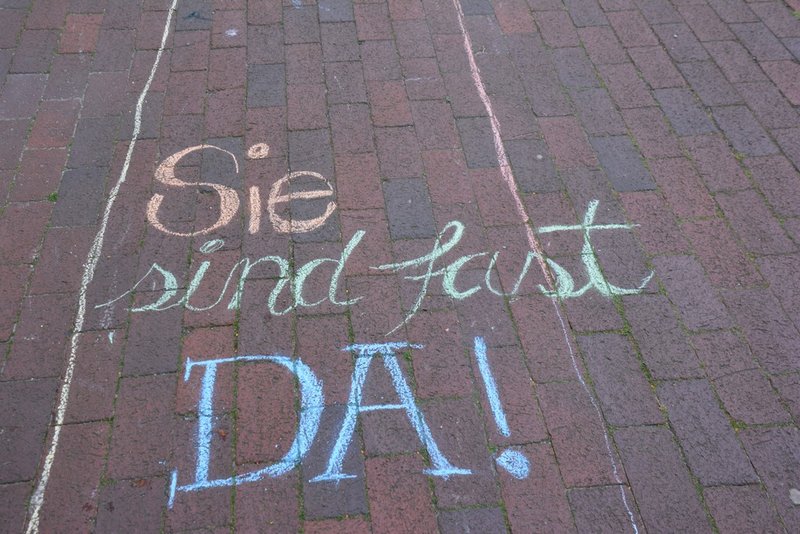 Sie
sind fast
DA!